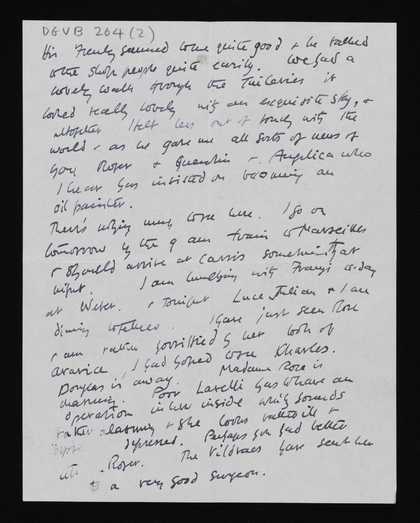 DGVB 204 (2)
His French seemed to me quite good & he talked
to the shop people quite easily. We had a
lovely walk through the Tuileries it
looked really lovely with an exquisite sky, &
altogether I felt less out of touch with the
world - as he gave me all sorts of news of
you, Roger & Quentin &. Angelica who
I hear has insisted on becoming an
oil painter.
There's nothing much to see here. I go on
tomorrow by the 9 am train to Marseilles
& should arrive at Cassis sometime at
night. I am lunching with Frances to-day
at Weber. & tonight Luce, Julian & I are
dining together. I have just seen Rose
& am rather horrified by her look of
avarice. I had hoped to see Charles.
Douglas is away. Madame Rose is
charming. Poor Lavelli has to have an
operation in her inside which sounds
rather alarming & she looks rather ill &
depressed. Perhaps you had better
Roger. The Vildracs have sent her
to a very good surgeon.